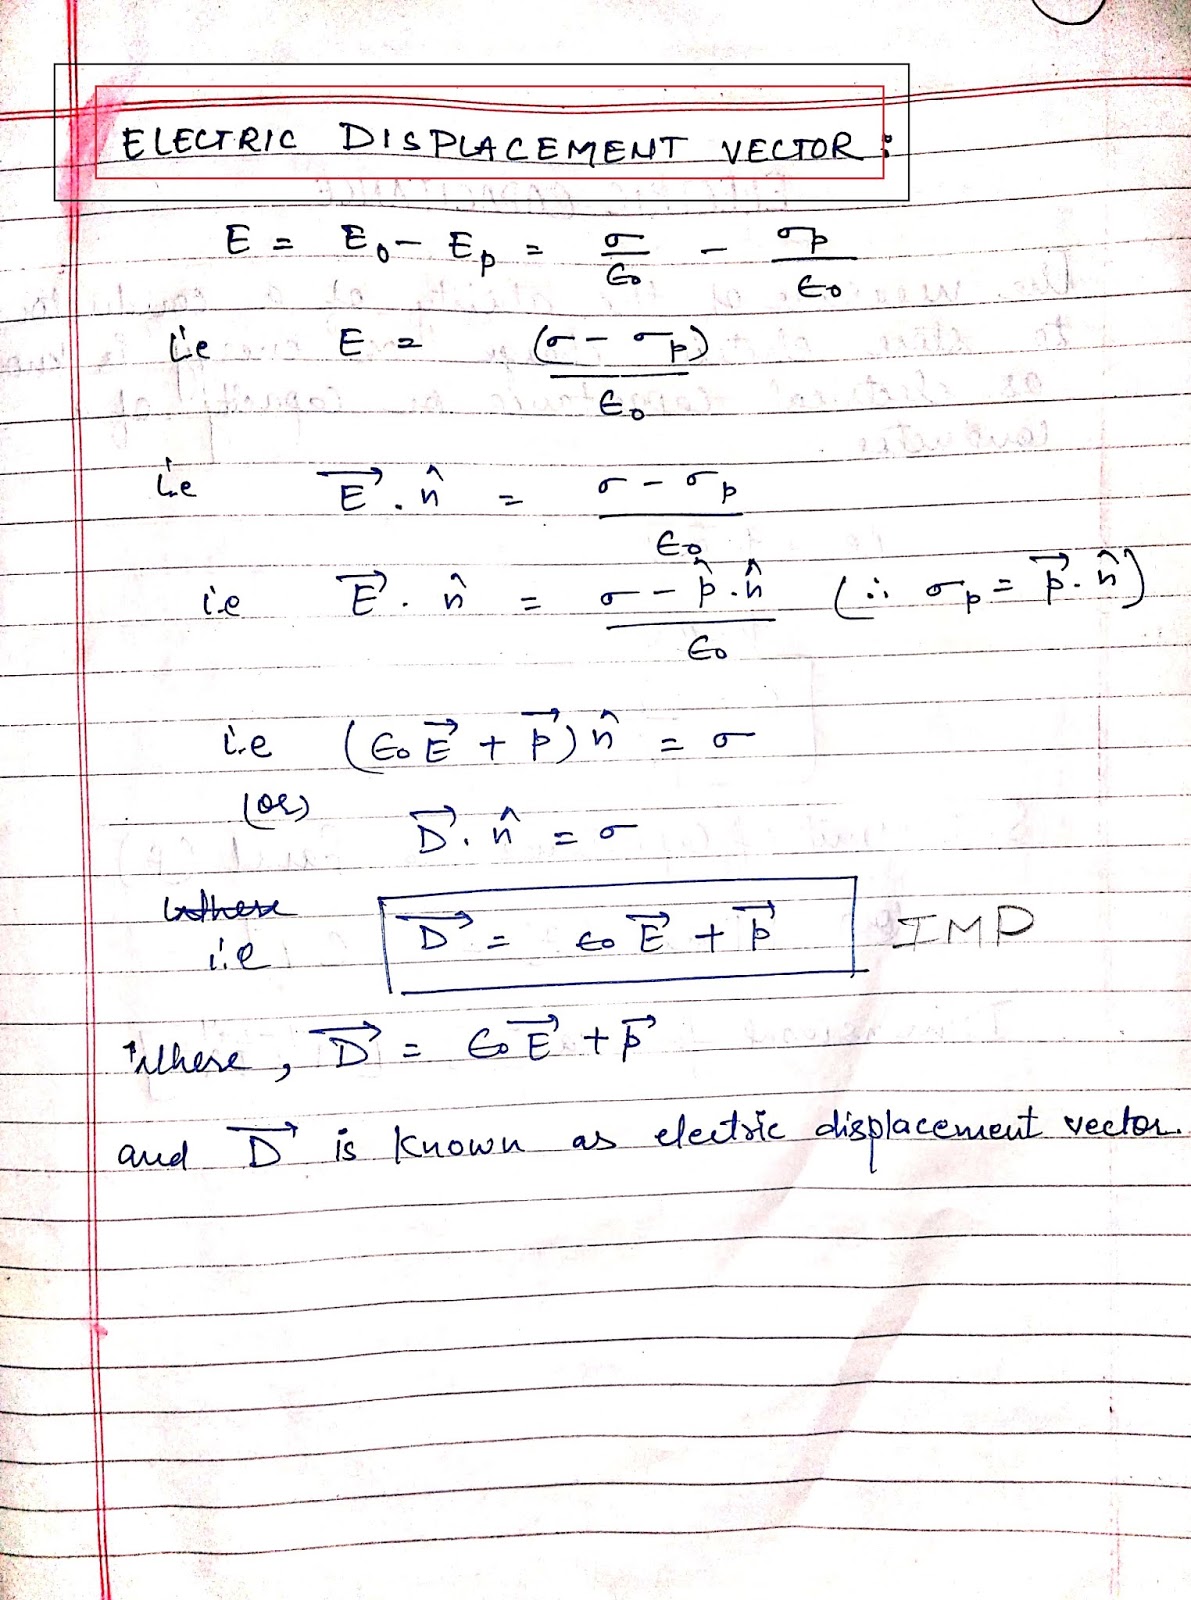 ELECTRIC DISPLACEMENT VECTOR :
E = E₀ - Eₚ = σ/ϵ₀ - σₚ/ϵ₀
i.e E = (σ - σₚ)/ϵ₀
i.e E⃗ . n̂ = σ - σₚ/ϵ₀
i.e E⃗ . n̂ = σ - p̂ . n̂/ϵ₀ (∴ σₚ = p⃗ . n̂)
i.e (ϵ₀ E⃗ + p⃗) n̂ = σ
(or)
D⃗ . n̂ = σ
i.e D⃗ = ϵ₀ E⃗ + p⃗ IMP
Where, D⃗ = ϵ₀ E⃗ + p⃗
and D⃗ is known as electric displacement vector.